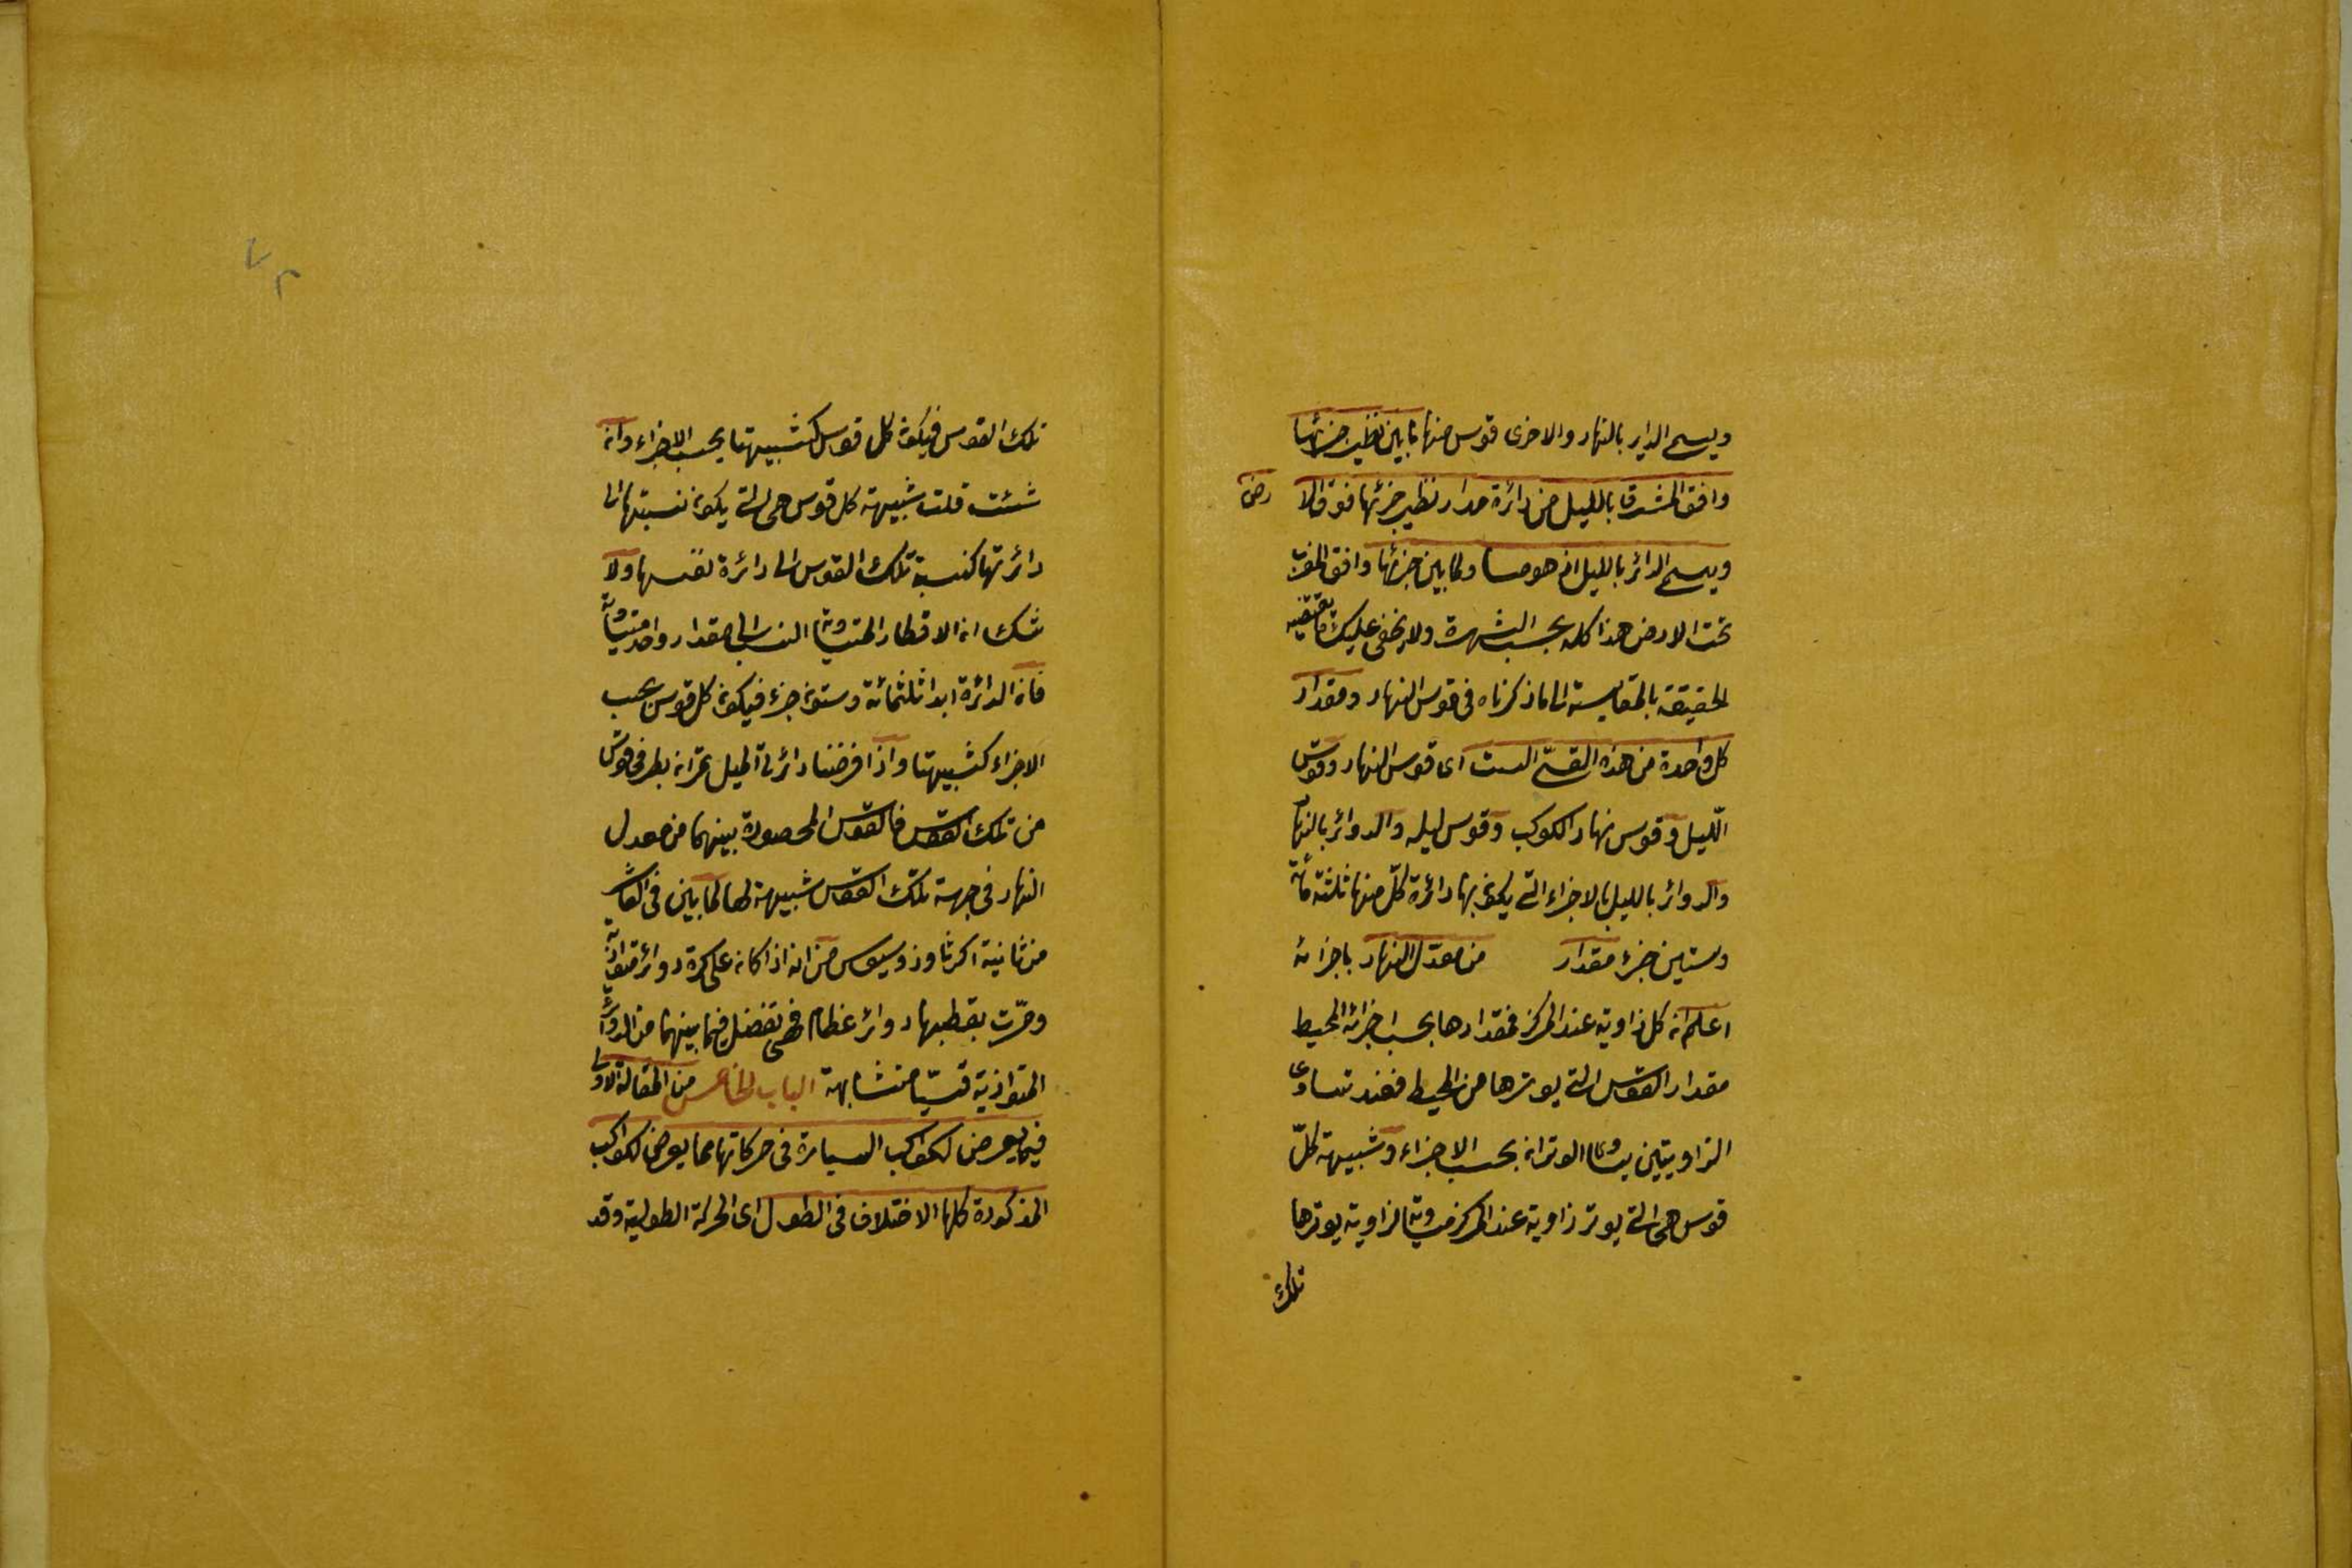 ويسمى الداير بالنهار والاخرى قوس منها ما بين نظير جزئها
وافق المشرق بالليل من دائرة مدار نظير جزئها فوق الا
رض
ويسمى الدائر بالليل اذ هو مساو لما بين جزئها وافق المغرب
تحت الارض هذا كله بحسب الشهرة ولا يخفى عليك ما يقتضيه
الحقيقة بالمقايسة الى ما ذكرناه فى قوس النهار ومقدار
كل واحدة من هذه القسى الست اى قوس النهار وقوس
الليل وقوس نهار الكوكب وقوس ليله والدوائر بالنهار
والدوائر بالليل بالاجزاء التى يكون بها دائرة كل منها ثلثمائة
وستين جزء مقدار من معدل النهار باجزائه
اعلم ان كل زاوية عند المركز فمقدارها بحسب اجزاء المحيط
مقدار القوس التى يوترها من المحيط فعند تساوى
الزاويتين يتساوى الوتران بحسب الاجزاء وشبيهة كل
قوس هى التى يوتر زاوية عند المركز مساوية لزاوية يوترها
تلك
٧٢
تلك القوس فيكون كل قوس كشبيهتها بحسب الاجزاء وان
شئت قلت شبيهة كل قوس هى التى يكون نسبتها الى
دائرتها كنسبة تلك القوس الى دائرة نفسها ولا
شك ان الاقطار المتساوية النسب الى مقدار واحد متساوية
فان الدائرة ابدا ثلثمائة وستون جزء فيكون كل قوس بحسب
الاجزاء كشبيهتها واذا فرضنا دائرتى الميل تمران بطرفى قوس
من تلك القوس فالقوس المحصورة بينهما من معدل
النهار فى جهة تلك القوس شبيهة لها لما بين فى العاشر
من ثانية اكر ثاوذوسيوس من انه اذا كان على كرة دوائر متوازية
ومرت بقطبيها دوائر عظام فهى تفضل فيما بينهما من الدوائر
المتوازية قسيا متشابهة الباب الخامس من المقالة الاولى
فيما يعرض للكواكب السيارة فى حركاتها مما يعرض للكواكب
المذكورة كلها الاختلاف فى الطول اى الحركة الطولية وقد